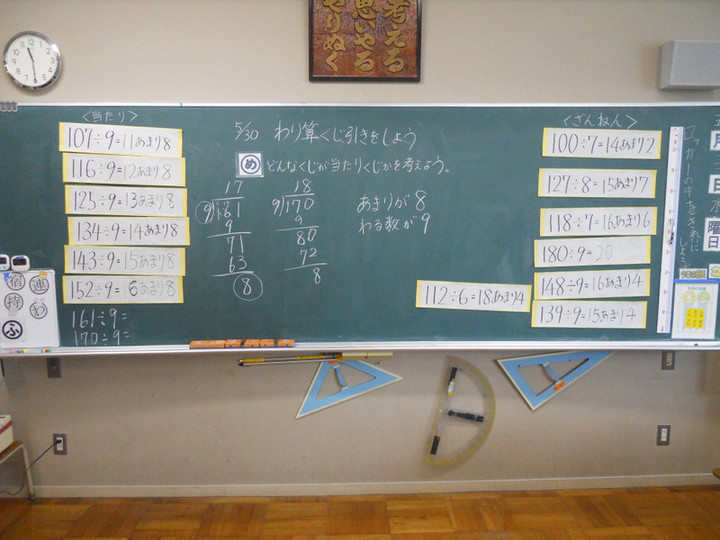 考える
思いやる
やりぬく
<当たり>
107÷9=11あまり8
116÷9=12あまり8
125÷9=13あまり8
134÷9=14あまり8
143÷9=15あまり8
152÷9=6あまり8
161÷9=
170÷9=
5/30 わり算くじ引きをしよう
め どんなくじが当たりくじかを考えよう。
17
9)161
9
71
63
8
18
9)170
9
80
72
8
あまりが8
わる数が9
<ざんねん>
100÷7=14あまり2
127÷8=15あまり7
118÷7=16あまり6
180÷9=20
148÷9=16あまり4
139÷9=15あまり4
112÷6=18あまり4
月
日
曜
日
宿
連
持
ふ